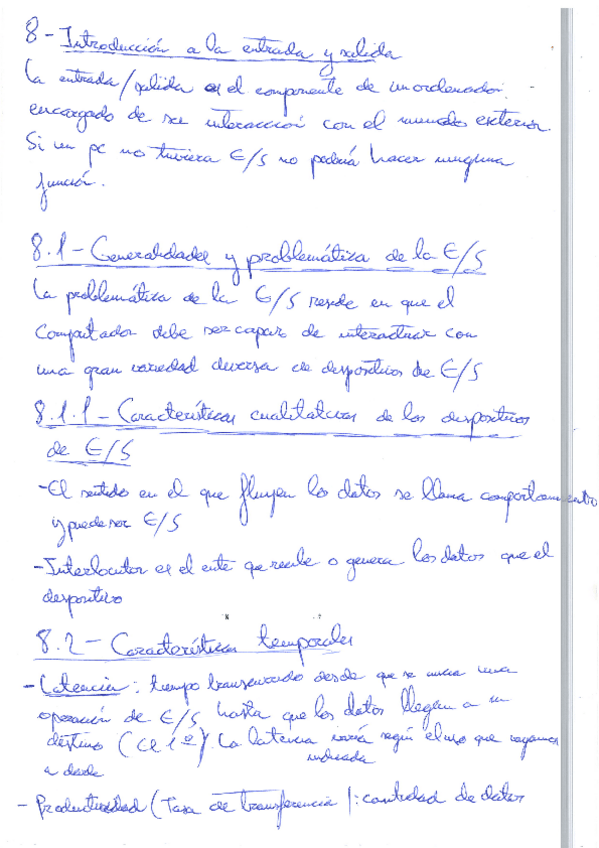 8 - Introducción a la entrada y salida
La entrada/salida es el componente de un ordenador
encargado de su interacción con el mundo exterior.
Si un pc no tuviera E/S no podría hacer ninguna
función.
8.1 - Generalidades y problemática de la E/S
La problemática de la E/S reside en que el
Computador debe ser capaz de interactuar con
una gran variedad diversa de dispositivos de E/S
8.1.1 - Características cualitativas de los dispositivos
de E/S
- El sentido en el que fluyen los datos se llama comportamiento
y puede ser E/S
- Interlocutor es el ente que recibe o genera los datos que el
dispositivo
8.2 - Características temporales
- Latencia: tiempo transcurrido desde que se inicia una
operación de E/S, hasta que los datos llegan a su
destino (el 1º). La latencia varía según el uso que vayamos
indicada
a darle
- Productividad (Tasa de transferencia): cantidad de datos